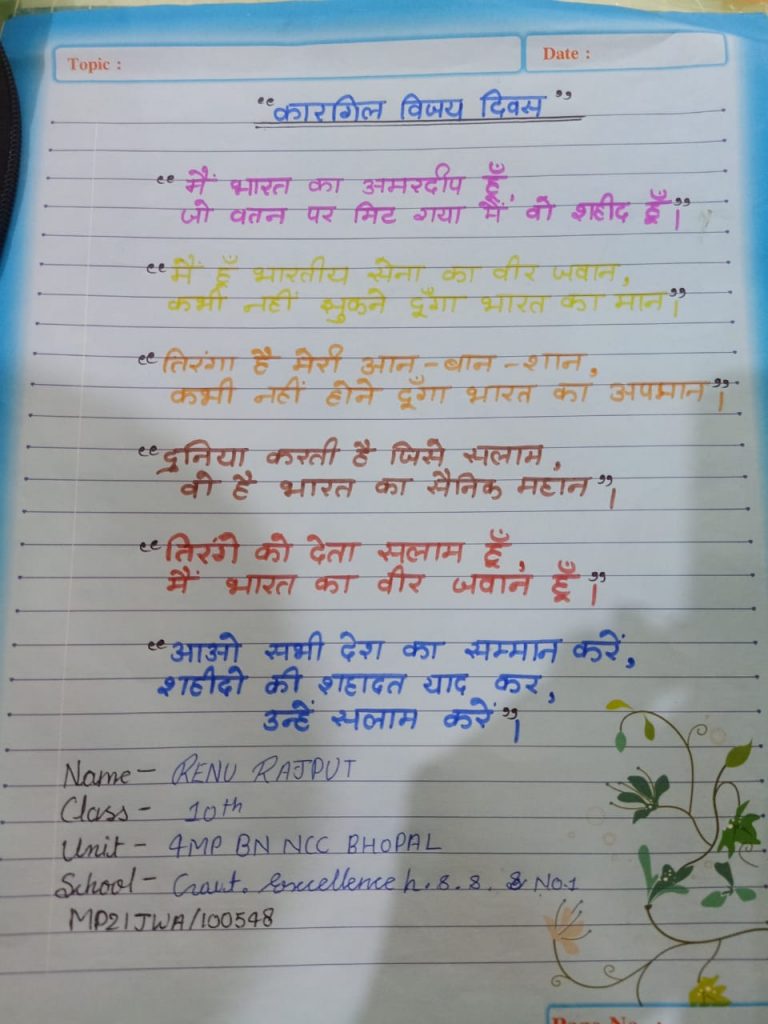 Topic :
Date :
“कारगिल विजय दिवस”
“मैं भारत का अमरदीप हूँ,
जो वतन पर मिट गया मैं, वो शहीद हूँ”।
“मैं हूँ भारतीय सेना का वीर जवान,
कभी नहीं झुकने दूँगा भारत का मान”।
“तिरंगा है मेरी आन-बान-शान,
कभी नहीं होने दूँगा भारत का अपमान”।
“दुनिया करती है जिसे सलाम,
वो है भारत का सैनिक महान”।
“तिरंगे को देता सलाम हूँ,
मैं भारत का वीर जवान हूँ”।
“आओ सभी देश का सम्मान करें,
शहीदो की शहादत याद कर,
उन्हें सलाम करें”।
Name - RENU RAJPUT
Class - 10th
Unit - 4MP BN NCC BHOPAL
School - Gout. Excellence h.s.s. No.1
MP21JWA/100548
Page No. :